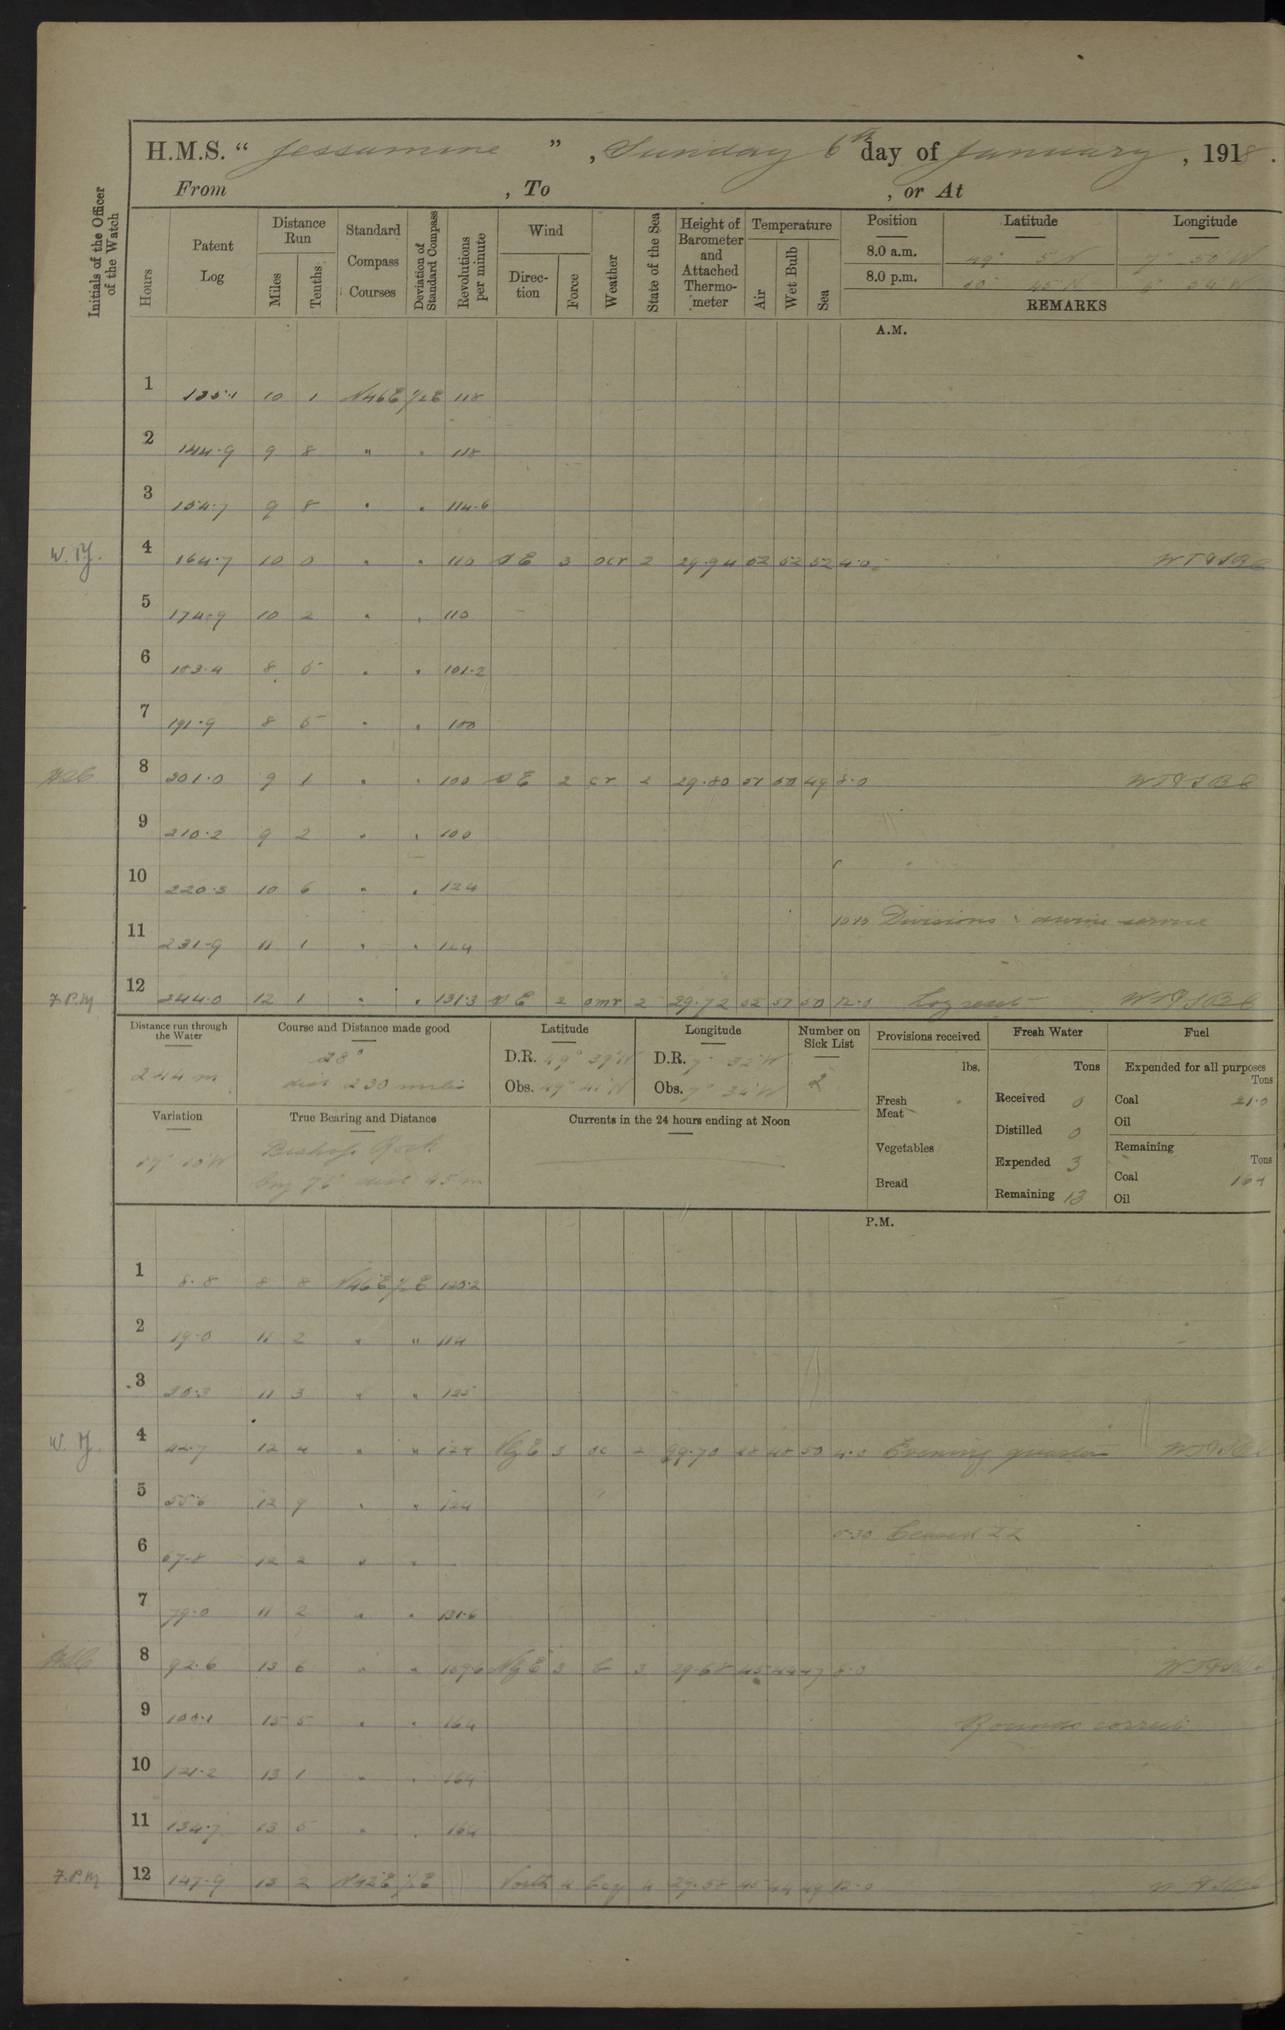 H.M.S. " Jessamine " , Sunday 6th day of January , 1918 .
From , To , or At
Initials of the Officer of the Watch
Hours
Patent Log
Distance Run
Miles
Tenths
Standard Compass Courses
Deviation of Standard Compass
Revolutions per minute
Wind
Direction
Force
Weather
State of the Sea
Height of Barometer and Attached Thermometer
Temperature
Air
Wet Bulb
Sea
Position Latitude Longitude
8.0 a.m. 49° 5 N 7° 50 W
8.0 p.m. 45 N
REMARKS
A.M.
1 135.1 10 1 N46E ½E 118
2 144.9 9 8 " " 118
3 154.7 9 8 " " 114.6
W.Y. 4 164.7 10 0 " " 110 SE 3 ocr 2 29.94 52 52 52 4.0
5 174.9 10 2 " " 110
6 183.4 8 5 " " 101.2
7 191.9 8 5 " " 100
8 201.0 9 1 " " 100 SE 2 cr 2 29.80 51 50 49 8.0
9 210.2 9 2 " " 100
10 220.8 10 6 " " 124
10.10 Divisions & divine service
11 231.9 11 1 " " 124
F.P.M 12 244.0 12 1 " " 131.3 SE 2 omr 2 29.72 52 51 50 12.0 Log reset
Distance run through the Water
244 m
Course and Distance made good
28°
dist 230 miles
Latitude
D.R. 49° 39' N
Obs. 49° 41' N
Longitude
D.R. 7° 32' W
Obs. 7° 34' W
Number on Sick List
2
Variation
True Bearing and Distance
Bishop Rock
brg 75° dist 45 m
Currents in the 24 hours ending at Noon
Provisions received
lbs.
Fresh Meat
Vegetables
Bread
Fresh Water
Tons
Received 0
Distilled 0
Expended 3
Remaining 13
Fuel
Expended for all purposes
Tons
Coal 21.0
Oil
Remaining
Tons
Coal 164
Oil
P.M.
1 8.8 8 8 N46E ½E 120.2
2 19.0 11 2 " " 114
3 30.3 11 3 " " 125
W.Y. 4 42.7 12 4 " " 124 NE 3 oc 2 29.70 48 48 50 4.0 Evening quarters
5 55.6 12 9 " " 124
5.30 Ceased ZZ
6 67.8 12 2 " "
7 79.0 11 2 " " 131.6
8 92.6 13 6 " " 3 c 3 29.68 45 44 47 8.0
9 108.1 15 5 " " 164 Rounds correct
10 121.2 13 1 " " 164
11 134.7 13 5 " " 164
F.P.M 12 147.9 13 2 N42E ½E North 4 bcq 4 29.58 45 44 49 12.0